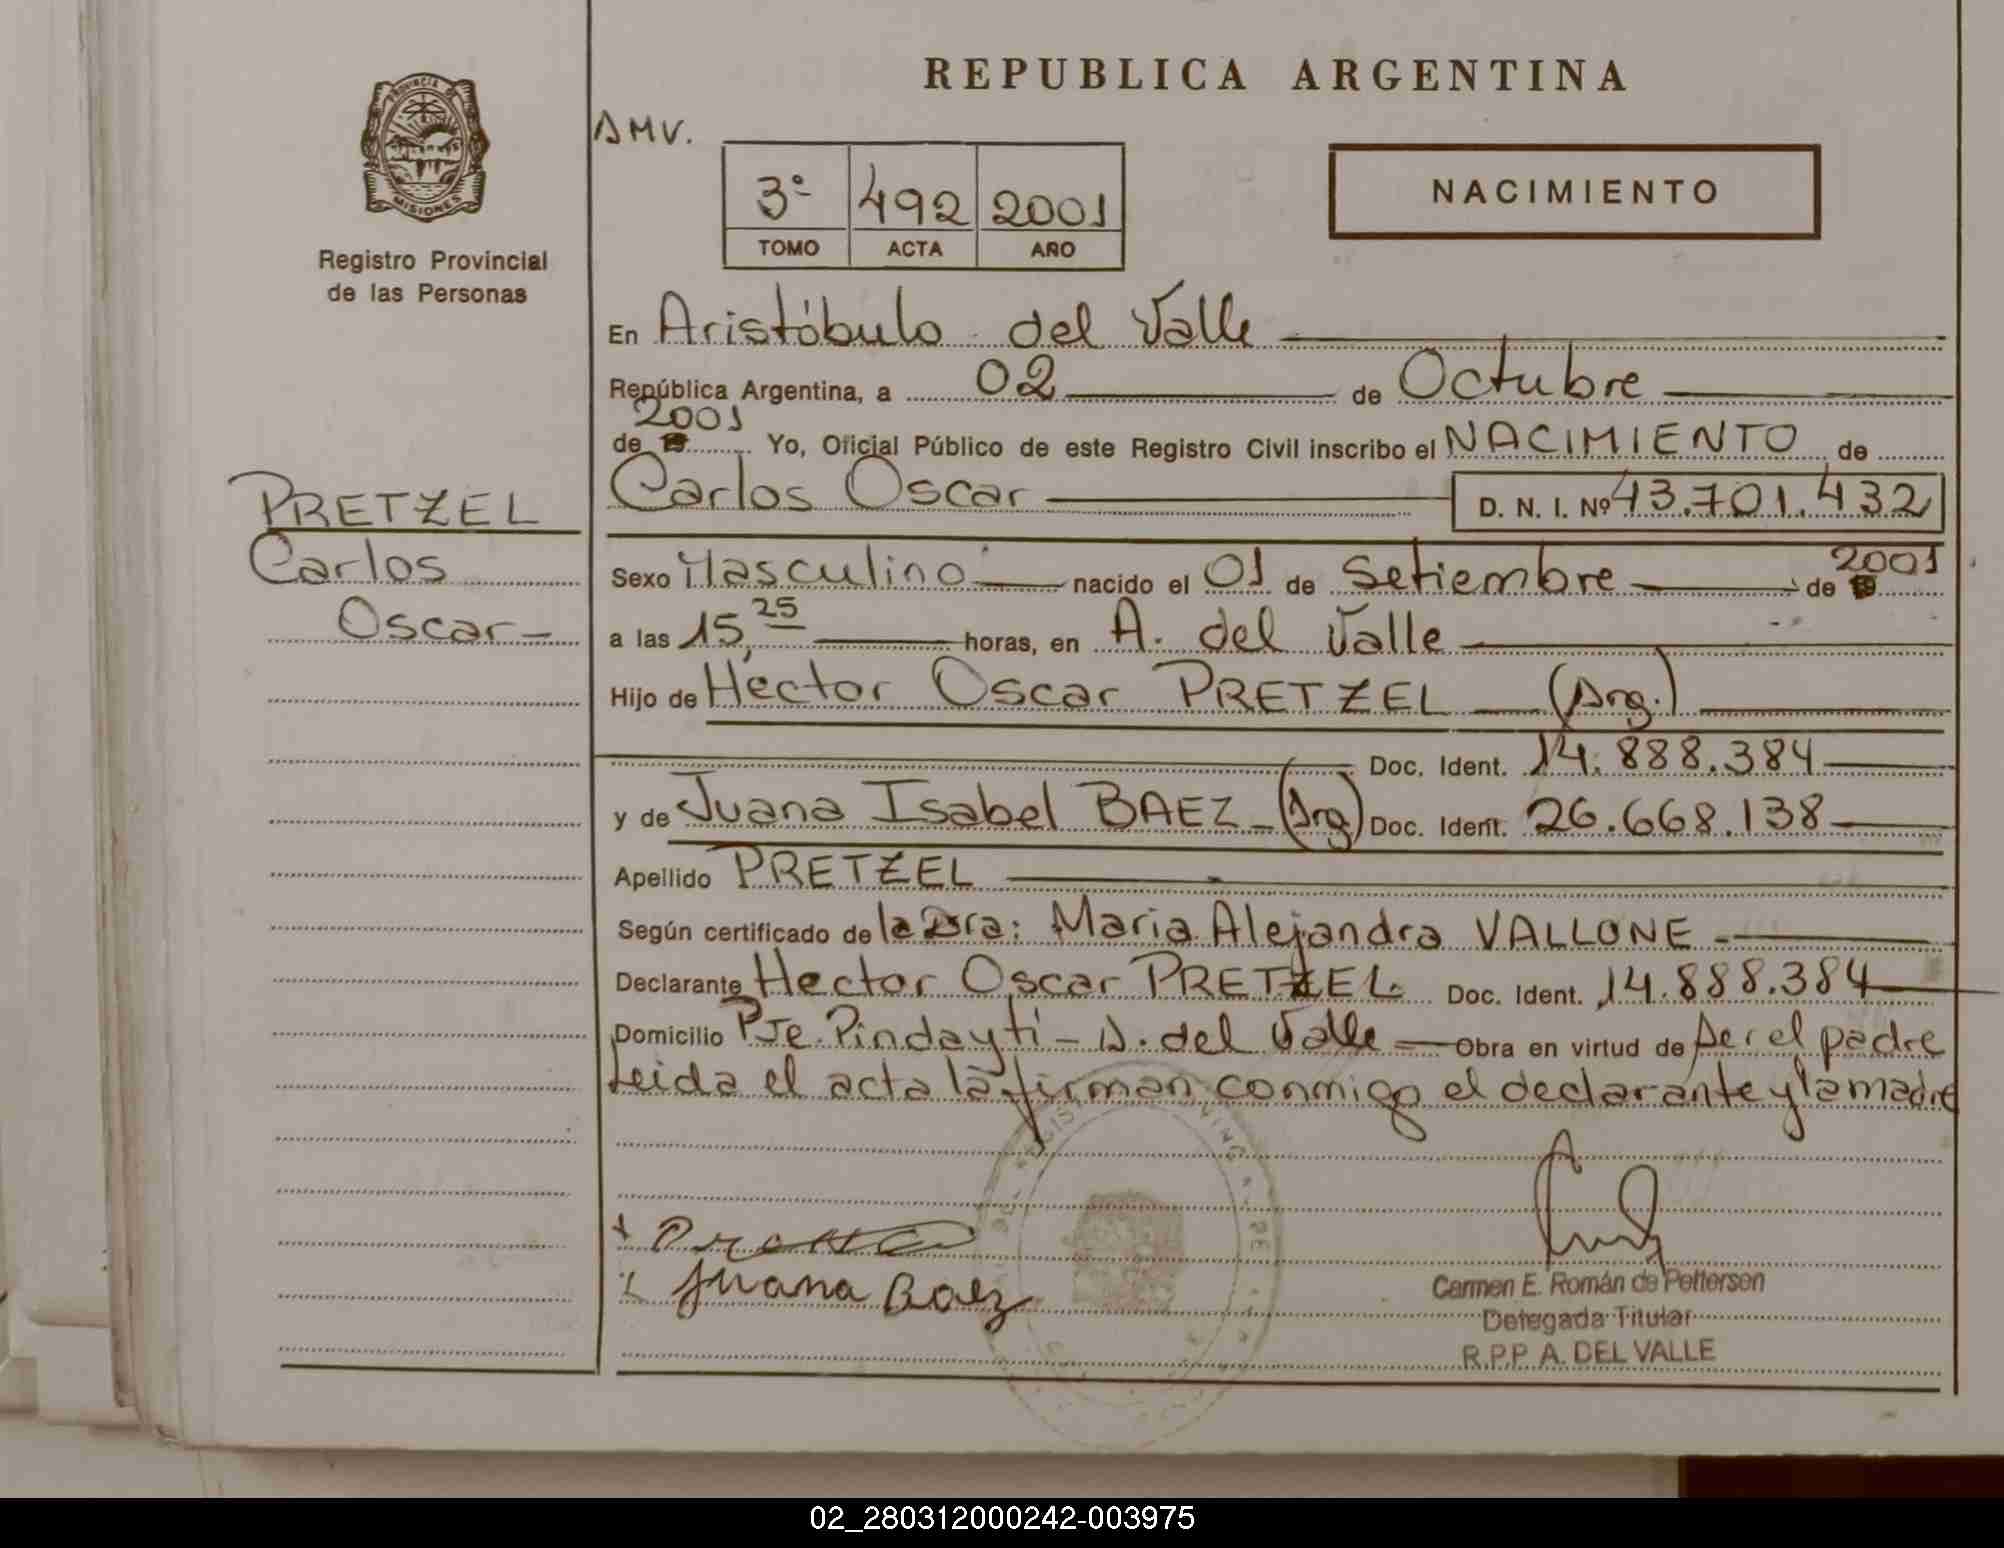 REPUBLICA ARGENTINA
PROVINCIA DE
MISIONES
Registro Provincial
de las Personas
AMV.
3º 492 2001
TOMO ACTA AÑO
NACIMIENTO
En Aristóbulo del Valle
República Argentina, a 02 de Octubre
2001
de 19 Yo, Oficial Público de este Registro Civil inscribo el NACIMIENTO de
PRETZEL
Carlos
Oscar
Carlos Oscar D. N. I. Nº 43.701.432
Sexo Masculino nacido el 01 de Setiembre de 19 2001
a las 15,25 horas, en A. del Valle
Hijo de Héctor Oscar PRETZEL (Arg.)
Doc. Ident. 14.888.384
y de Juana Isabel BAEZ (Arg) Doc. Ident. 26.668.138
Apellido PRETZEL
Según certificado de la Dra: Maria Alejandra VALLONE
Declarante Hector Oscar PRETZEL Doc. Ident. 14.888.384
Domicilio Pje. Pindaytí - A. del Valle Obra en virtud de ser el padre
Leida el acta la firman conmigo el declarante y la madre
Juana Baez
Carmen E. Román de Pettersen
Delegada Titular
R.P.P. A. DEL VALLE
02_280312000242-003975